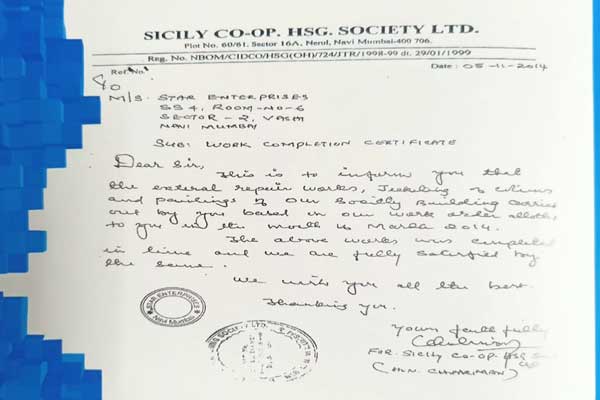 SICILY CO-OP. HSG. SOCIETY LTD.
Plot No. 60/61, Sector 16A, Nerul, Navi Mumbai-400 706.
Reg. No. NBOM/CIDCO/HSG(OH)/724/JTR/1998-99 dt. 29/01/1999
Ref. No. Date: 05-11-2014
To
M/S. STAR ENTERPRISES
SS 4, ROOM-NO-6
SECTOR-2, VASHI
NAVI MUMBAI
SUB: WORK COMPLETION CERTIFICATE
Dear Sir,
This is to inform you that
the external repair works, of
and paintings of our Society Building carried
out by you based on our work order
to you in the month of March 2014.
The above works was completed
in time and we are fully satisfied by
the same.
We wish you all the best.
Thanking you.
Yours faithfully
STAR ENTERPRISES
Navi Mumbai
SOCIETY LTD.
FOR. SICILY CO-OP. HSG
(HON. CHAIRMAN)